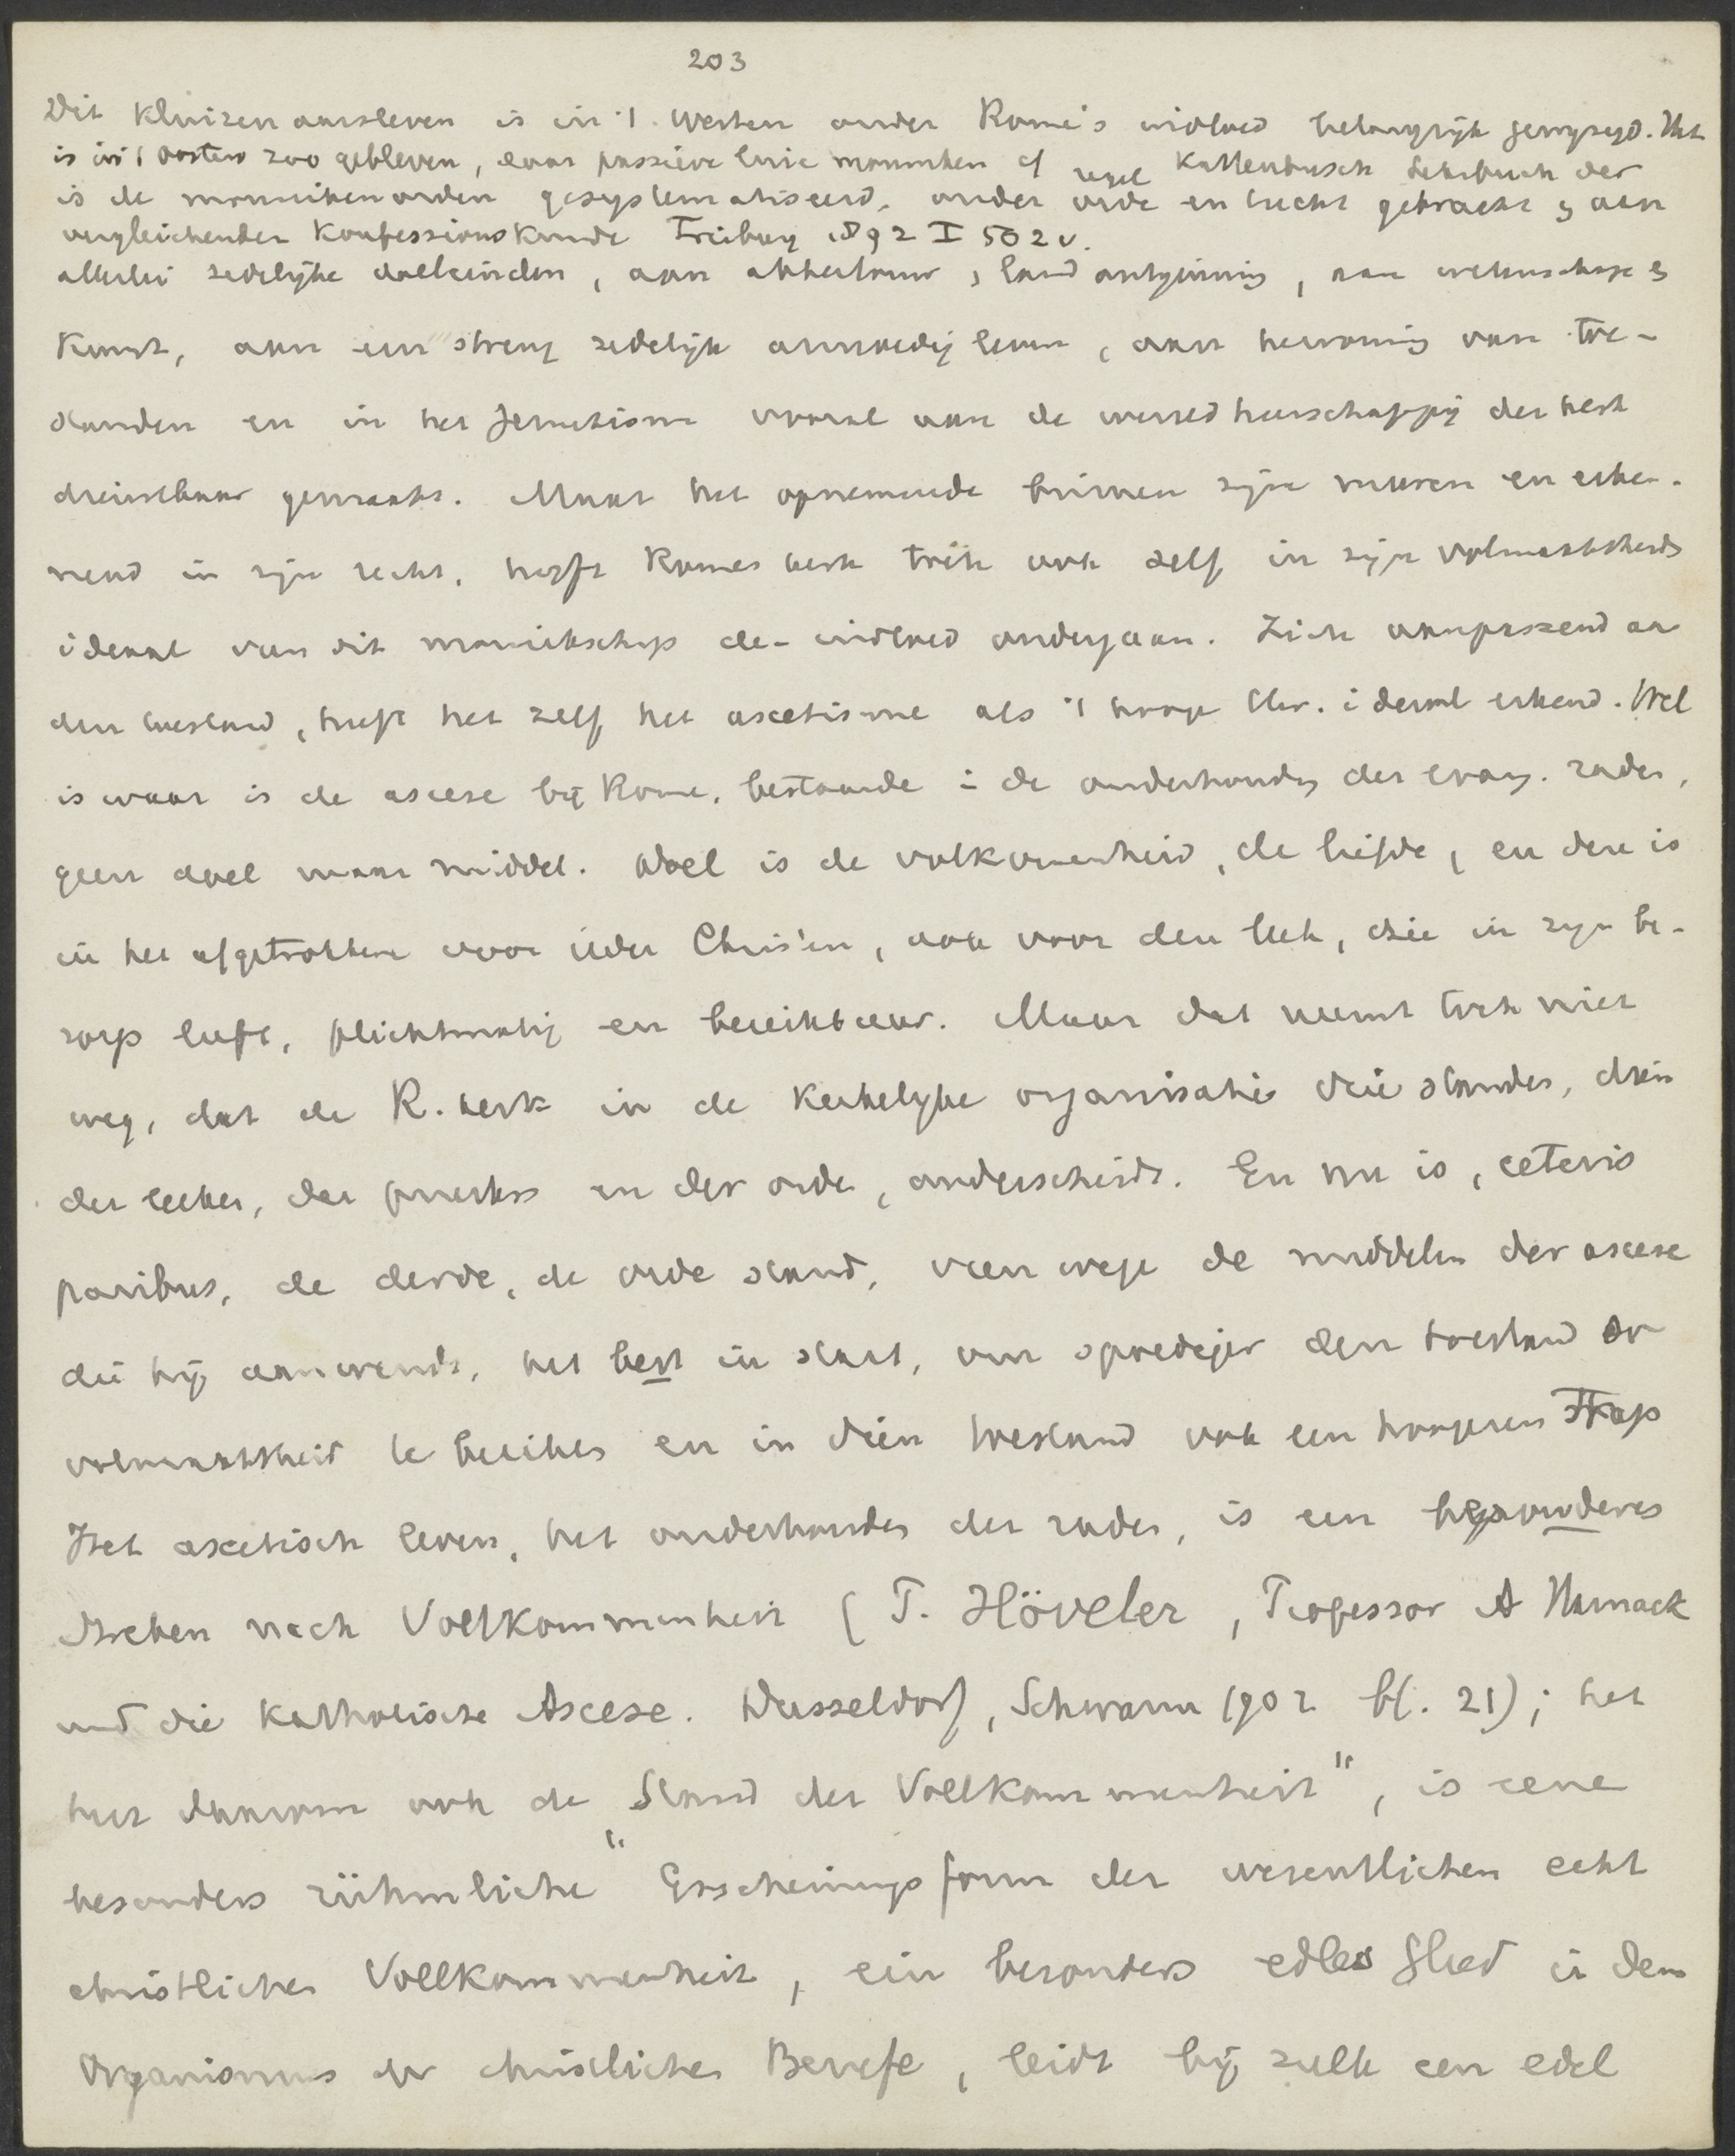 203
Dit kluizenaarsleven is in 't Westen onder Rome's invloed belangrijk gewijzigd. Het
is in 't oosten zoo gebleven, daar passieve luie monniken cf veel Kattenbusch Lehrbuch der
is de monnikenorden gesystematiseerd, onder orde en tucht gebracht & aan
vergleichenden Konfessionskunde Freiburg 1892 I 502 v.
allerlei zedelijke doeleinden, aan akkerbouw, landontginning, aan wetenschap &
Kunst, aan een streng zedelijk armoedig leven, aan herwinning van
en in het Jezuitisme vooral aan de wereldheerschappij der kerk
dienstbaar gemaakt. Maar het opnemende binnen zijne muren en erken-
nend in zijn recht, heeft Romes kerk toch ook zelf in zijn volmaaktheids
ideaal van dit monnikschap de invloed ondergaan. Zich aanpassend aan
den toestand, heeft het zelf het ascetisme als 't hoog Chr. ideaal erkend. Wel
is waar is de ascese bij Rome, bestaande in de onderhouding der evang. raden,
geen doel maar middel. Doel is de volkomenheid, de liefde, en deze is
in het afgetrokkene voor ieder Christen, ook voor den leek, die in zijn be-
roep leeft, plichtmatig en bereikbaar. Maar dat neemt toch niet
weg, dat de R. kerk in de Kerkelijke organisatie drie standen, dien
der leeken, der priesters en der orde, onderscheidt. En nu is, ceteris
paribus, de derde, de orde stand, van wege de middelen der ascese
die hij aanwendt, het best in staat, om spoediger den toestand der
volmaaktheid te bereiken en in dien toestand ook een hoogeren Trap
Het ascetisch leven, het onderhouden der raden, is een besonderes
Streben nach Vollkommenheit (T. Höveler, Professor A Harnack
und die katholische Ascese. Dusseldorf, Schwann 1902 bl. 21); het
het daarom ook de "Stand der Vollkommenheit", is eene
besonders rühmliche "Erscheinungsform der wesentlichen echt
christlichen Vollkommenheit, ein besonders edles Glied in dem
Organismus der christlichen Berufe, leidt bij zulk een edel